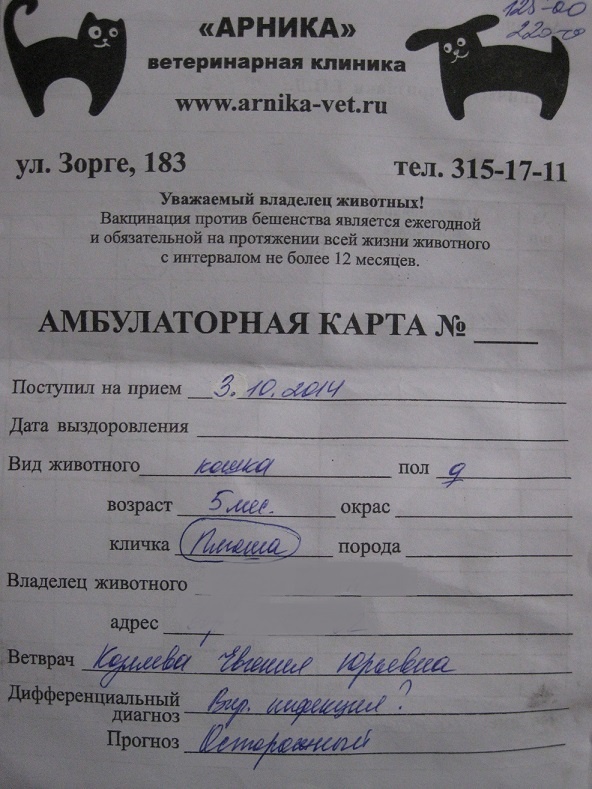 125-00
220-00
«АРНИКА»
ветеринарная клиника
www.arnika-vet.ru
ул. Зорге, 183
тел. 315-17-11
Уважаемый владелец животных!
Вакцинация против бешенства является ежегодной
и обязательной на протяжении всей жизни животного
с интервалом не более 12 месяцев.
АМБУЛАТОРНАЯ КАРТА №
Поступил на прием 3.10.2014
Дата выздоровления
Вид животного кошка пол
возраст 5 мес. окрас
кличка Плюша порода
Владелец животного
адрес
Ветврач Евгения Юрьевна
Дифференциальный
диагноз Вир. инфекция?
Прогноз Осторожный